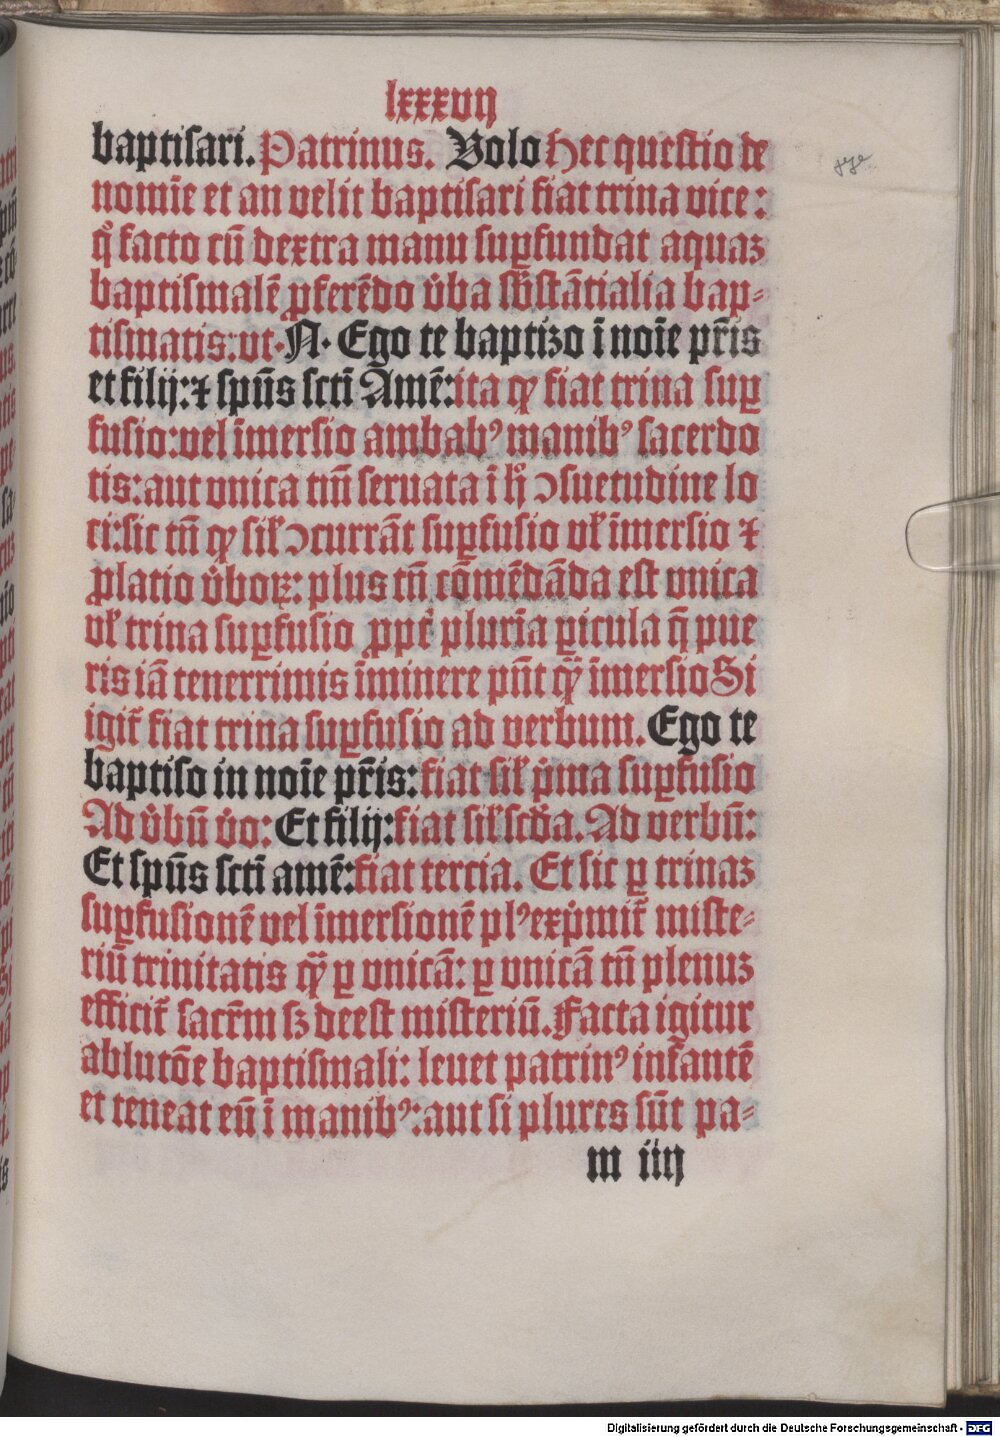 lxxxvij
baptisari. Patrinus. Volo Hec questio de
nomīe et an velit baptisari fiat trina vice:
qͦ facto cū dextra manu supꝑfundat aquaꝫ
baptismalē ꝓferēdo v̾ba sb̄stātialia bap⸗
tismatis: vt. N. Ego te baptizo ī noīe pr̄is
et filij: ⁊ spūs scti Amē: ita ꝙ fiat trina suꝑ
fusio: vel īmersio ambabꝰ manibꝰ sacerdo
tis: aut vnica tm̄ seruata ī hͦ ꝯsuetudine lo
ci: sic tn̄ ꝙ sil̄ ꝯcurrāt suꝑfusio vl̄ īmersio ⁊
ꝓlatio v̾boꝝ: plus tn̄ cōmēdāda est vnica
vl̄ trina suꝑfusio ꝓpt̄ plurīa ꝑicula q̄ pue
ris iā tenerrimis īminere pn̄t ꝙ̄ īmersio Si
igit̄ fiat trina suꝑfusio ad verbum. Ego te
baptiso in noīe pr̄is: fiat sil̄ pͥma suꝑfusio
Ad v̾bū v̾o: Et filij: fiat sil̄ scd̄a. Ad verbū:
Et spūs scti amē: fiat tercia. Et sic ꝑ trinaꝫ
suꝑfusionē vel īmersionē plꝰ expͥmit̄ miste⸗
riū trinitatis ꝙ̄ ꝑ vnicā: ꝑ vnicā tn̄ plenuꝫ
efficit̄ sacr̄m sꝫ deest misteriū. Facta igitur
ablutōe baptismali: leuet patrinꝰ infantē
et teneat eū ī manibꝰ: aut si plures sūt pa⸗
m iiij
Digitalisierung gefördert durch die Deutsche Forschungsgemeinschaft - DFG